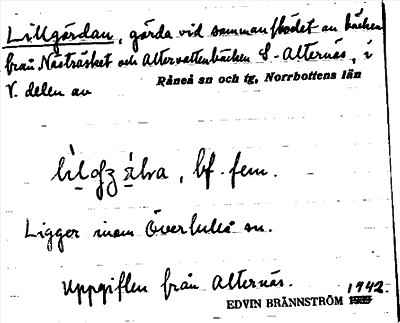 Lillgärdan, gärda vid sammanflödet av bäcken
från Nästräsket och Altervattenbäcken S. Alternäs, i
V. delen av
Råneå sn och tg, Norrbottens län
, bf. fem.
Ligger inom Överluleå sn.
Uppgiften från Alternäs.
1942.
EDVIN BRÄNNSTRÖM